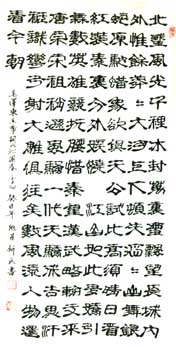 北國風光千里冰封萬里雪飄望長城內
外惟餘莽莽大河上下頓失滔滔山舞銀
蛇原馳蠟象欲與天公試比高須晴日看
紅裝素裹分外妖嬈江山如此多嬌引無
數英雄競折腰惜秦皇漢武略輸文采
唐宗宋祖稍遜風騷一代天驕成吉思汗
只識彎弓射大雕俱往矣數風流人物還
看今朝
毛澤東主席詞沁園春雪